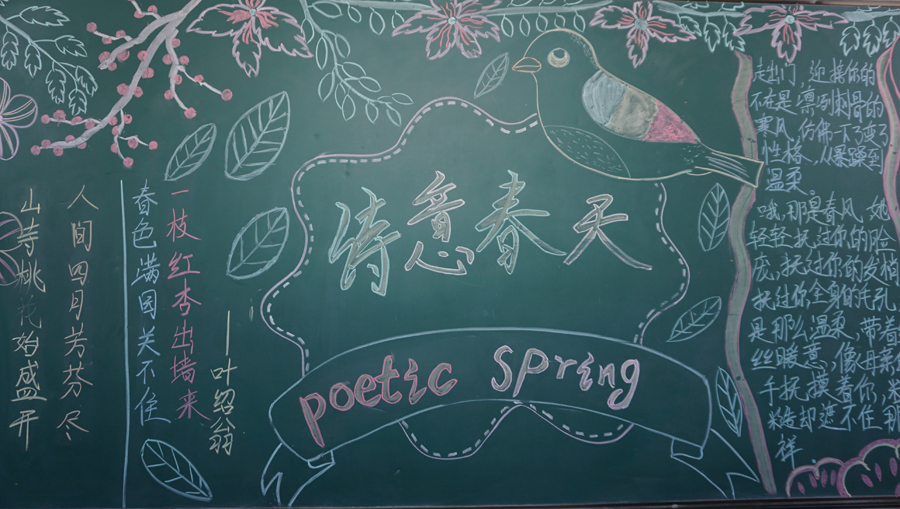 诗意春天
poetic spring
一枝红杏出墙来
春色满园关不住
——叶绍翁
人间四月芳芬尽
山寺桃花始盛开
走出门,迎接你的
不在是凛冽刺骨的
寒风,仿佛一下变了
性格,从暴躁到
温柔。
哦,那是春风,她
轻轻抚过你的脸
庞,抚过你的发梢
抚过你全身的毛孔
是那么温柔,带着
丝暖意,像母亲
手抚摸着你,
糙却遮不住那
样.